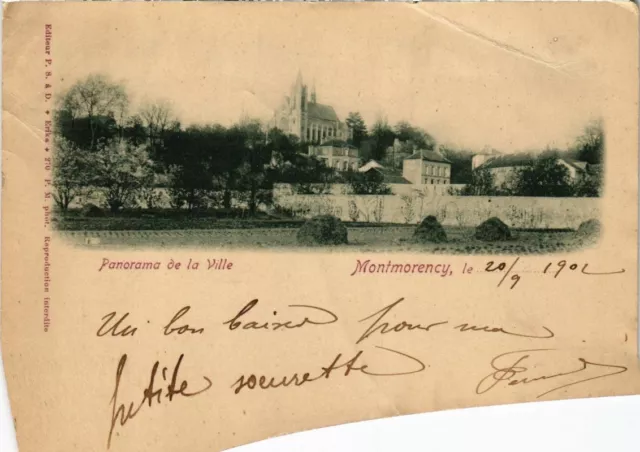 Editeur P. S. & D. ✦ Erika ✦ 270 P. M. phot. Reproduction interdite
Panorama de la Ville
Montmorency, le 20/9 1902
Un bon baiser pour ma
petite sœurette